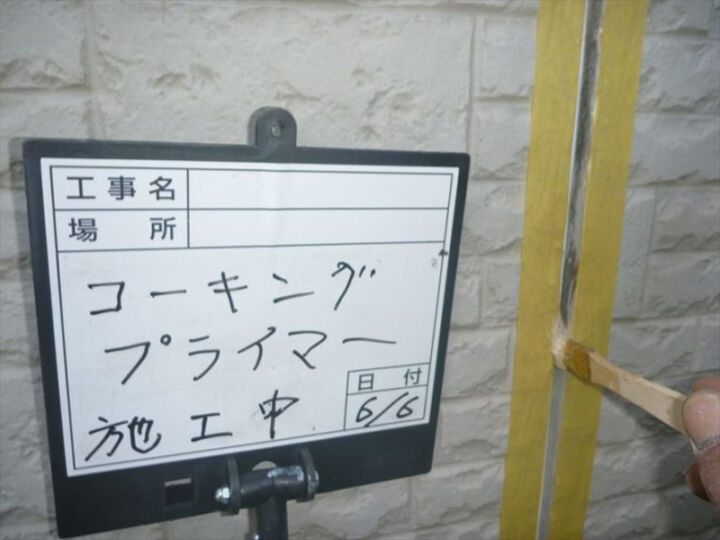 工事名
場所
コーキング
プライマー
施工中
日付
6/6